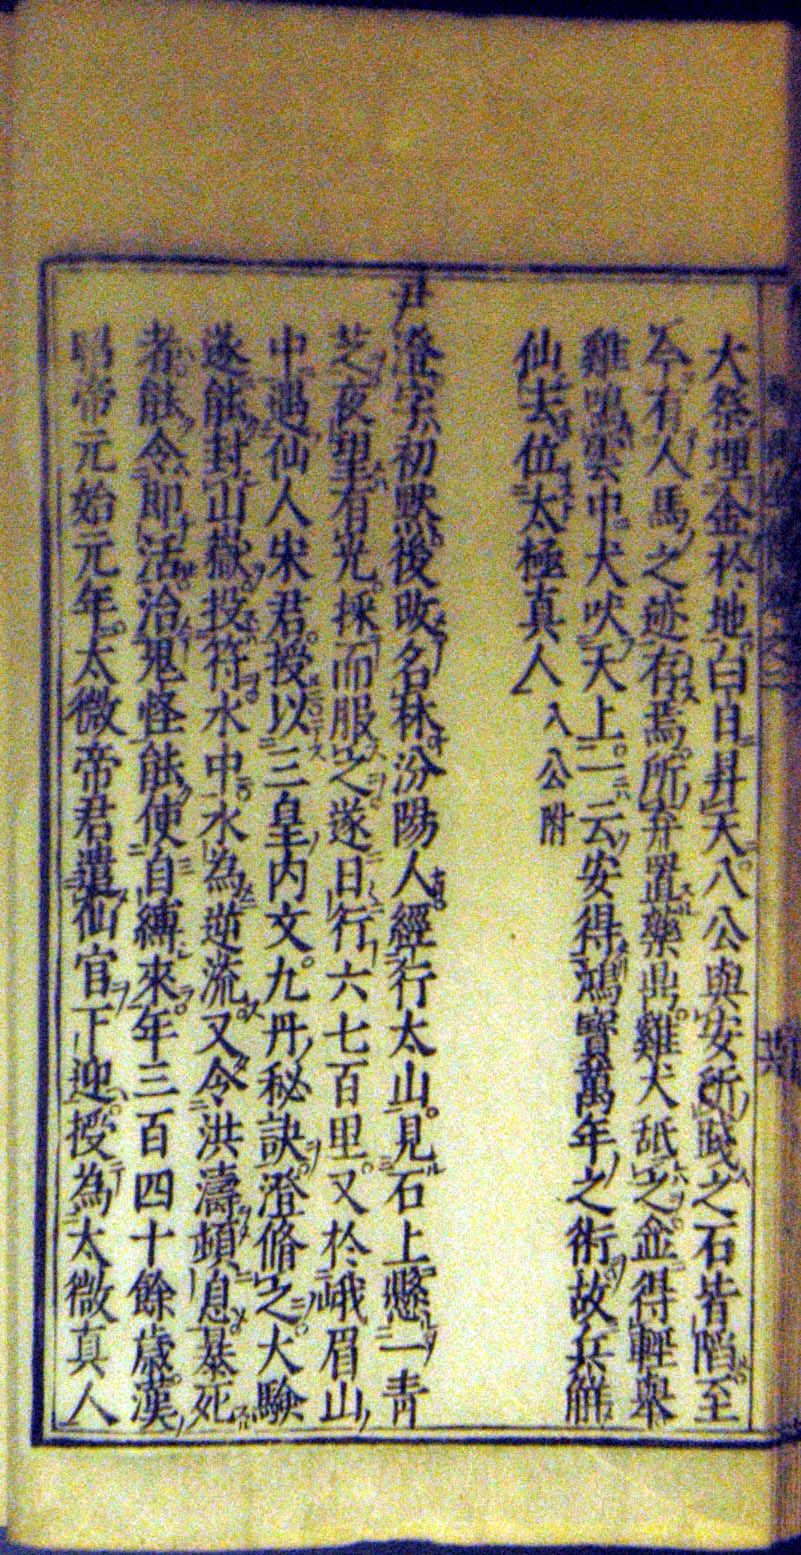 大祭埋金於地白日昇天八公與安所踐之石皆陷至
今有人馬之迹存焉所弃置藥鼎雞犬舐之並得輕舉
雞鳴雲中犬吠天上一云安得鴻寶萬年之術故兵解
仙去位太極真人八公附
尹澄字初默後改名林汾陽人經行太山見石上懸一青
芝夜望有光採而服之遂日行六七百里又於峨眉山
中遇仙人宋君授以三皇內文九丹秘訣澄脩之大驗
遂能封山嶽投符水中水為逆流又令洪濤頓息暴死
者能令即活治鬼怪能使自縛來年三百四十餘歲漢
昭帝元始元年太微帝君遣仙官下迎授為太微真人